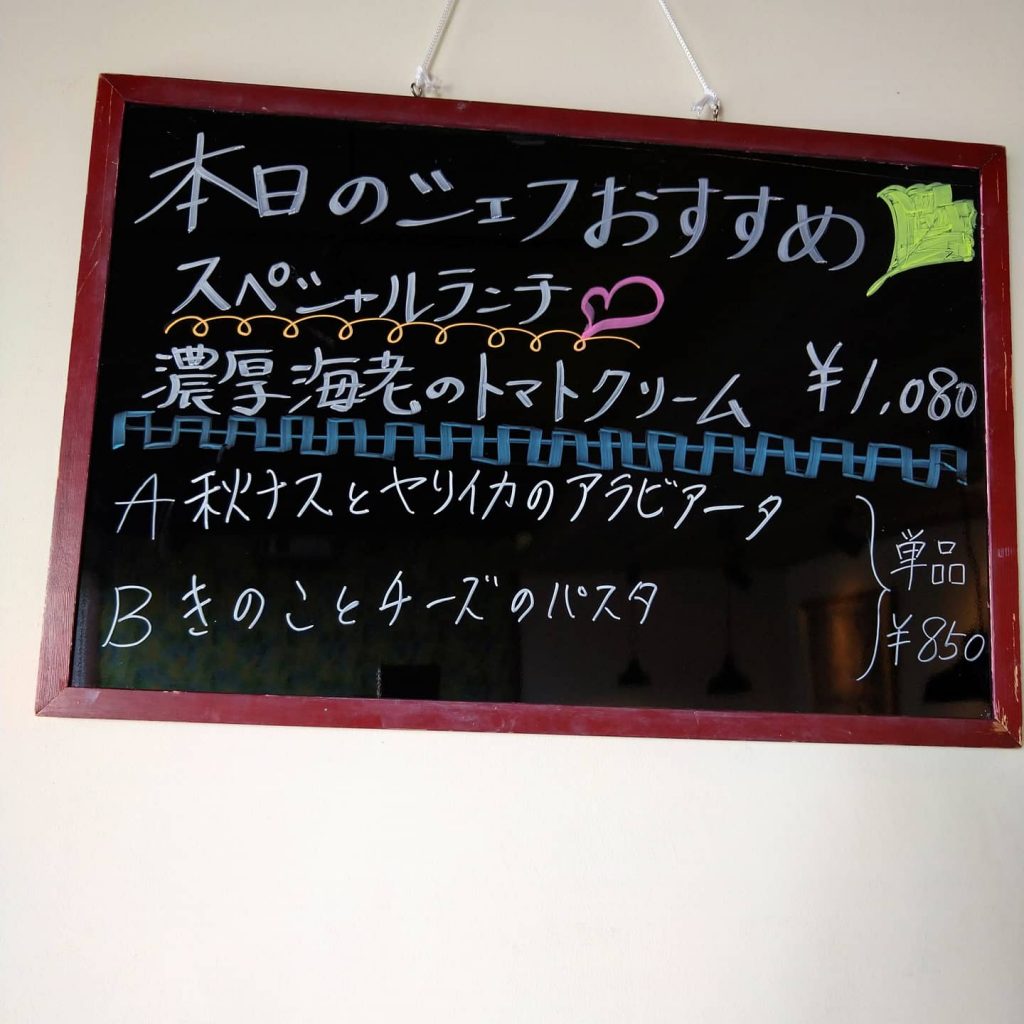 本日のジェフおすすめ
スペシャルランチ
濃厚海老のトマトクリーム ¥1,080
A 秋ナスとヤリイカのアラビアータ
B きのことチーズのパスタ
単品
¥850